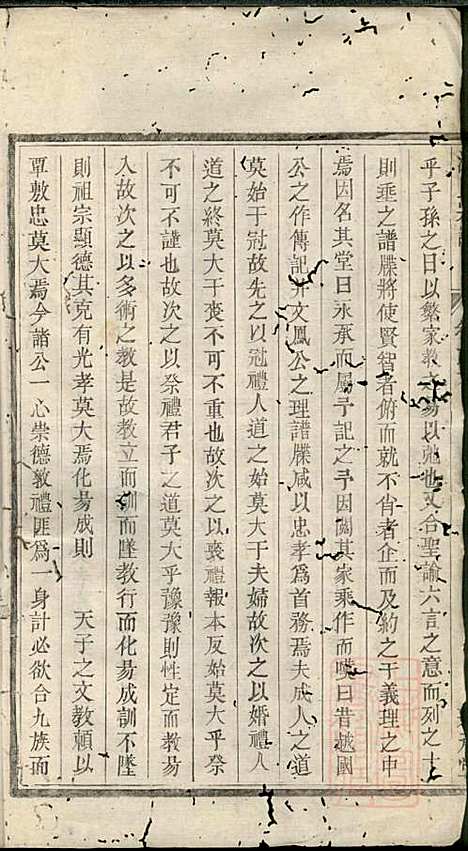 乎子孫之日以繁家教之易以弛也又合聖諭六言之意而列之十
則垂之譜牒將使賢智者俯而就不肖者企而及約之于義理之中
焉因名其堂曰永承而屬予記之予因閱其家乘作而嘆曰昔越國
公之作傳記并文鳳公之理譜牒咸以忠孝爲首務焉夫成人之道
莫始于冠故先之以冠禮人道之始莫大于夫婦故次之以婚禮人
道之終莫大于喪不可不重也故次之以喪禮報本反始莫大乎祭
不可不謹也故次之以祭禮君子之道莫大乎豫豫則性定而教易
入故次之以多術之教是故教立而訓而墜教行而化易成訓不墜
則祖宗顯德其克有光孝莫大焉化易成則 天子之文教賴以
覃敷忠莫大焉今諸公一心崇德敦禮匪爲一身計必欲合九族而